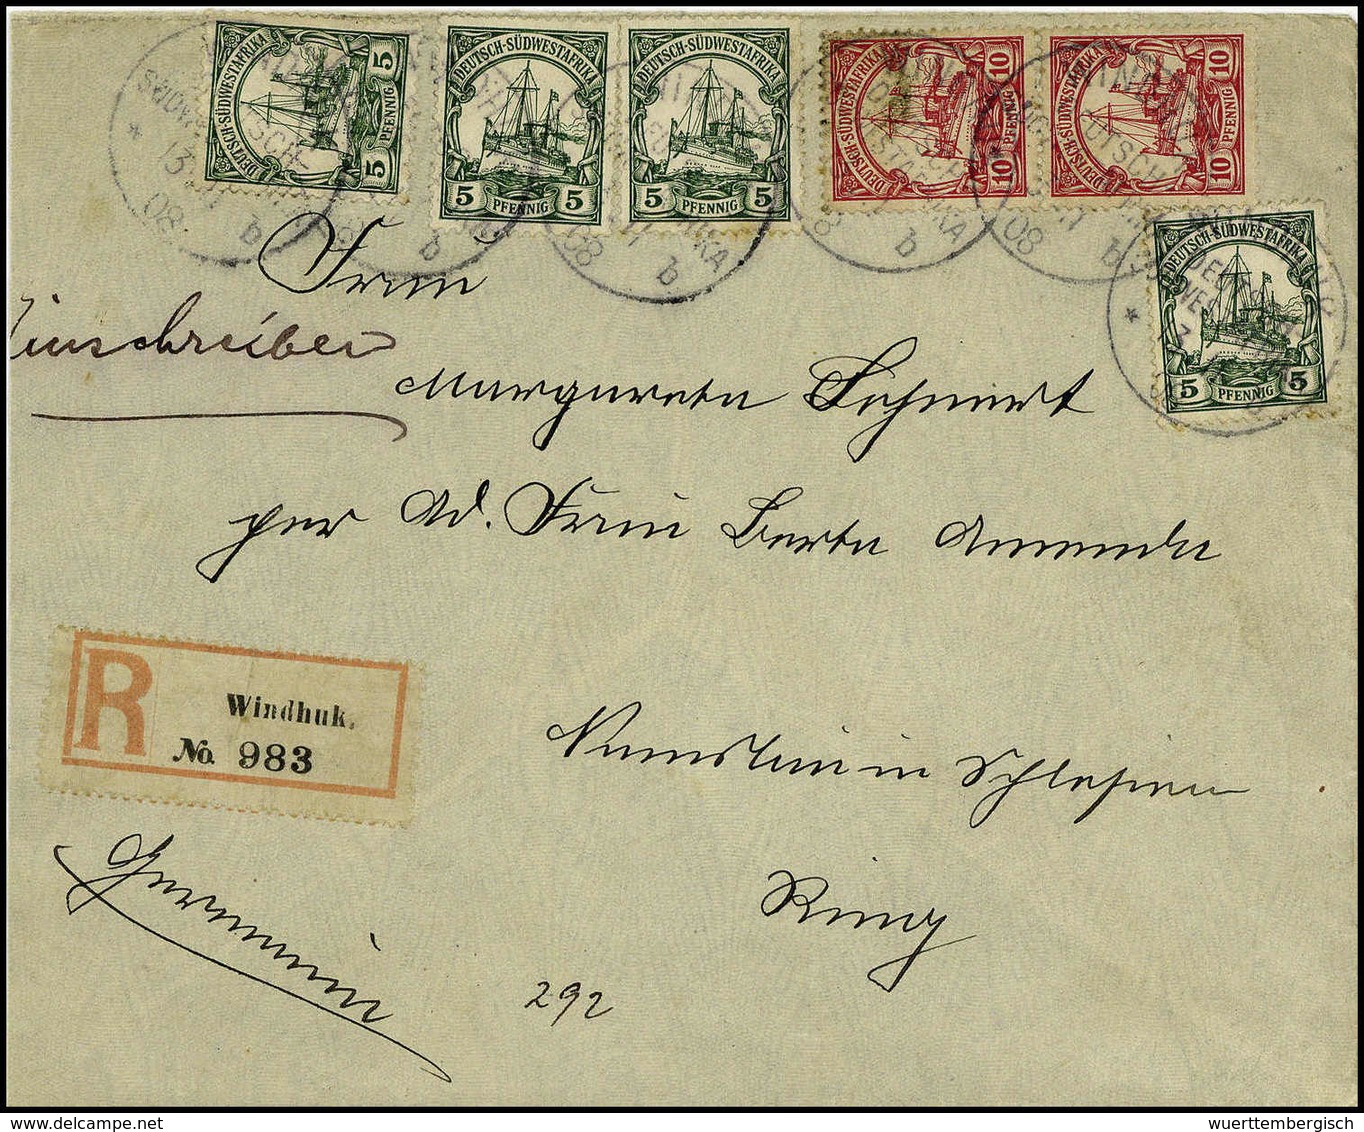 DEUTSCH-SÜDWESTAFRIKA 5 PFENNIG 5
DEUTSCH-SÜDWESTAFRIKA 5 PFENNIG 5
DEUTSCH-SÜDWESTAFRIKA 5 PFENNIG 5
DEUTSCH-SÜDWESTAFRIKA 10 PFENNIG 10
DEUTSCH-SÜDWESTAFRIKA 10 PFENNIG 10
DEUTSCH-SÜDWESTAFRIKA 5 PFENNIG 5
Frau
Einschreiben
Margareta Schmidt
per Ad. Frau Berta
R Windhuk.
No. 983
Namslau in Schlesien
Ring
Germania
292
wuerttembergisch